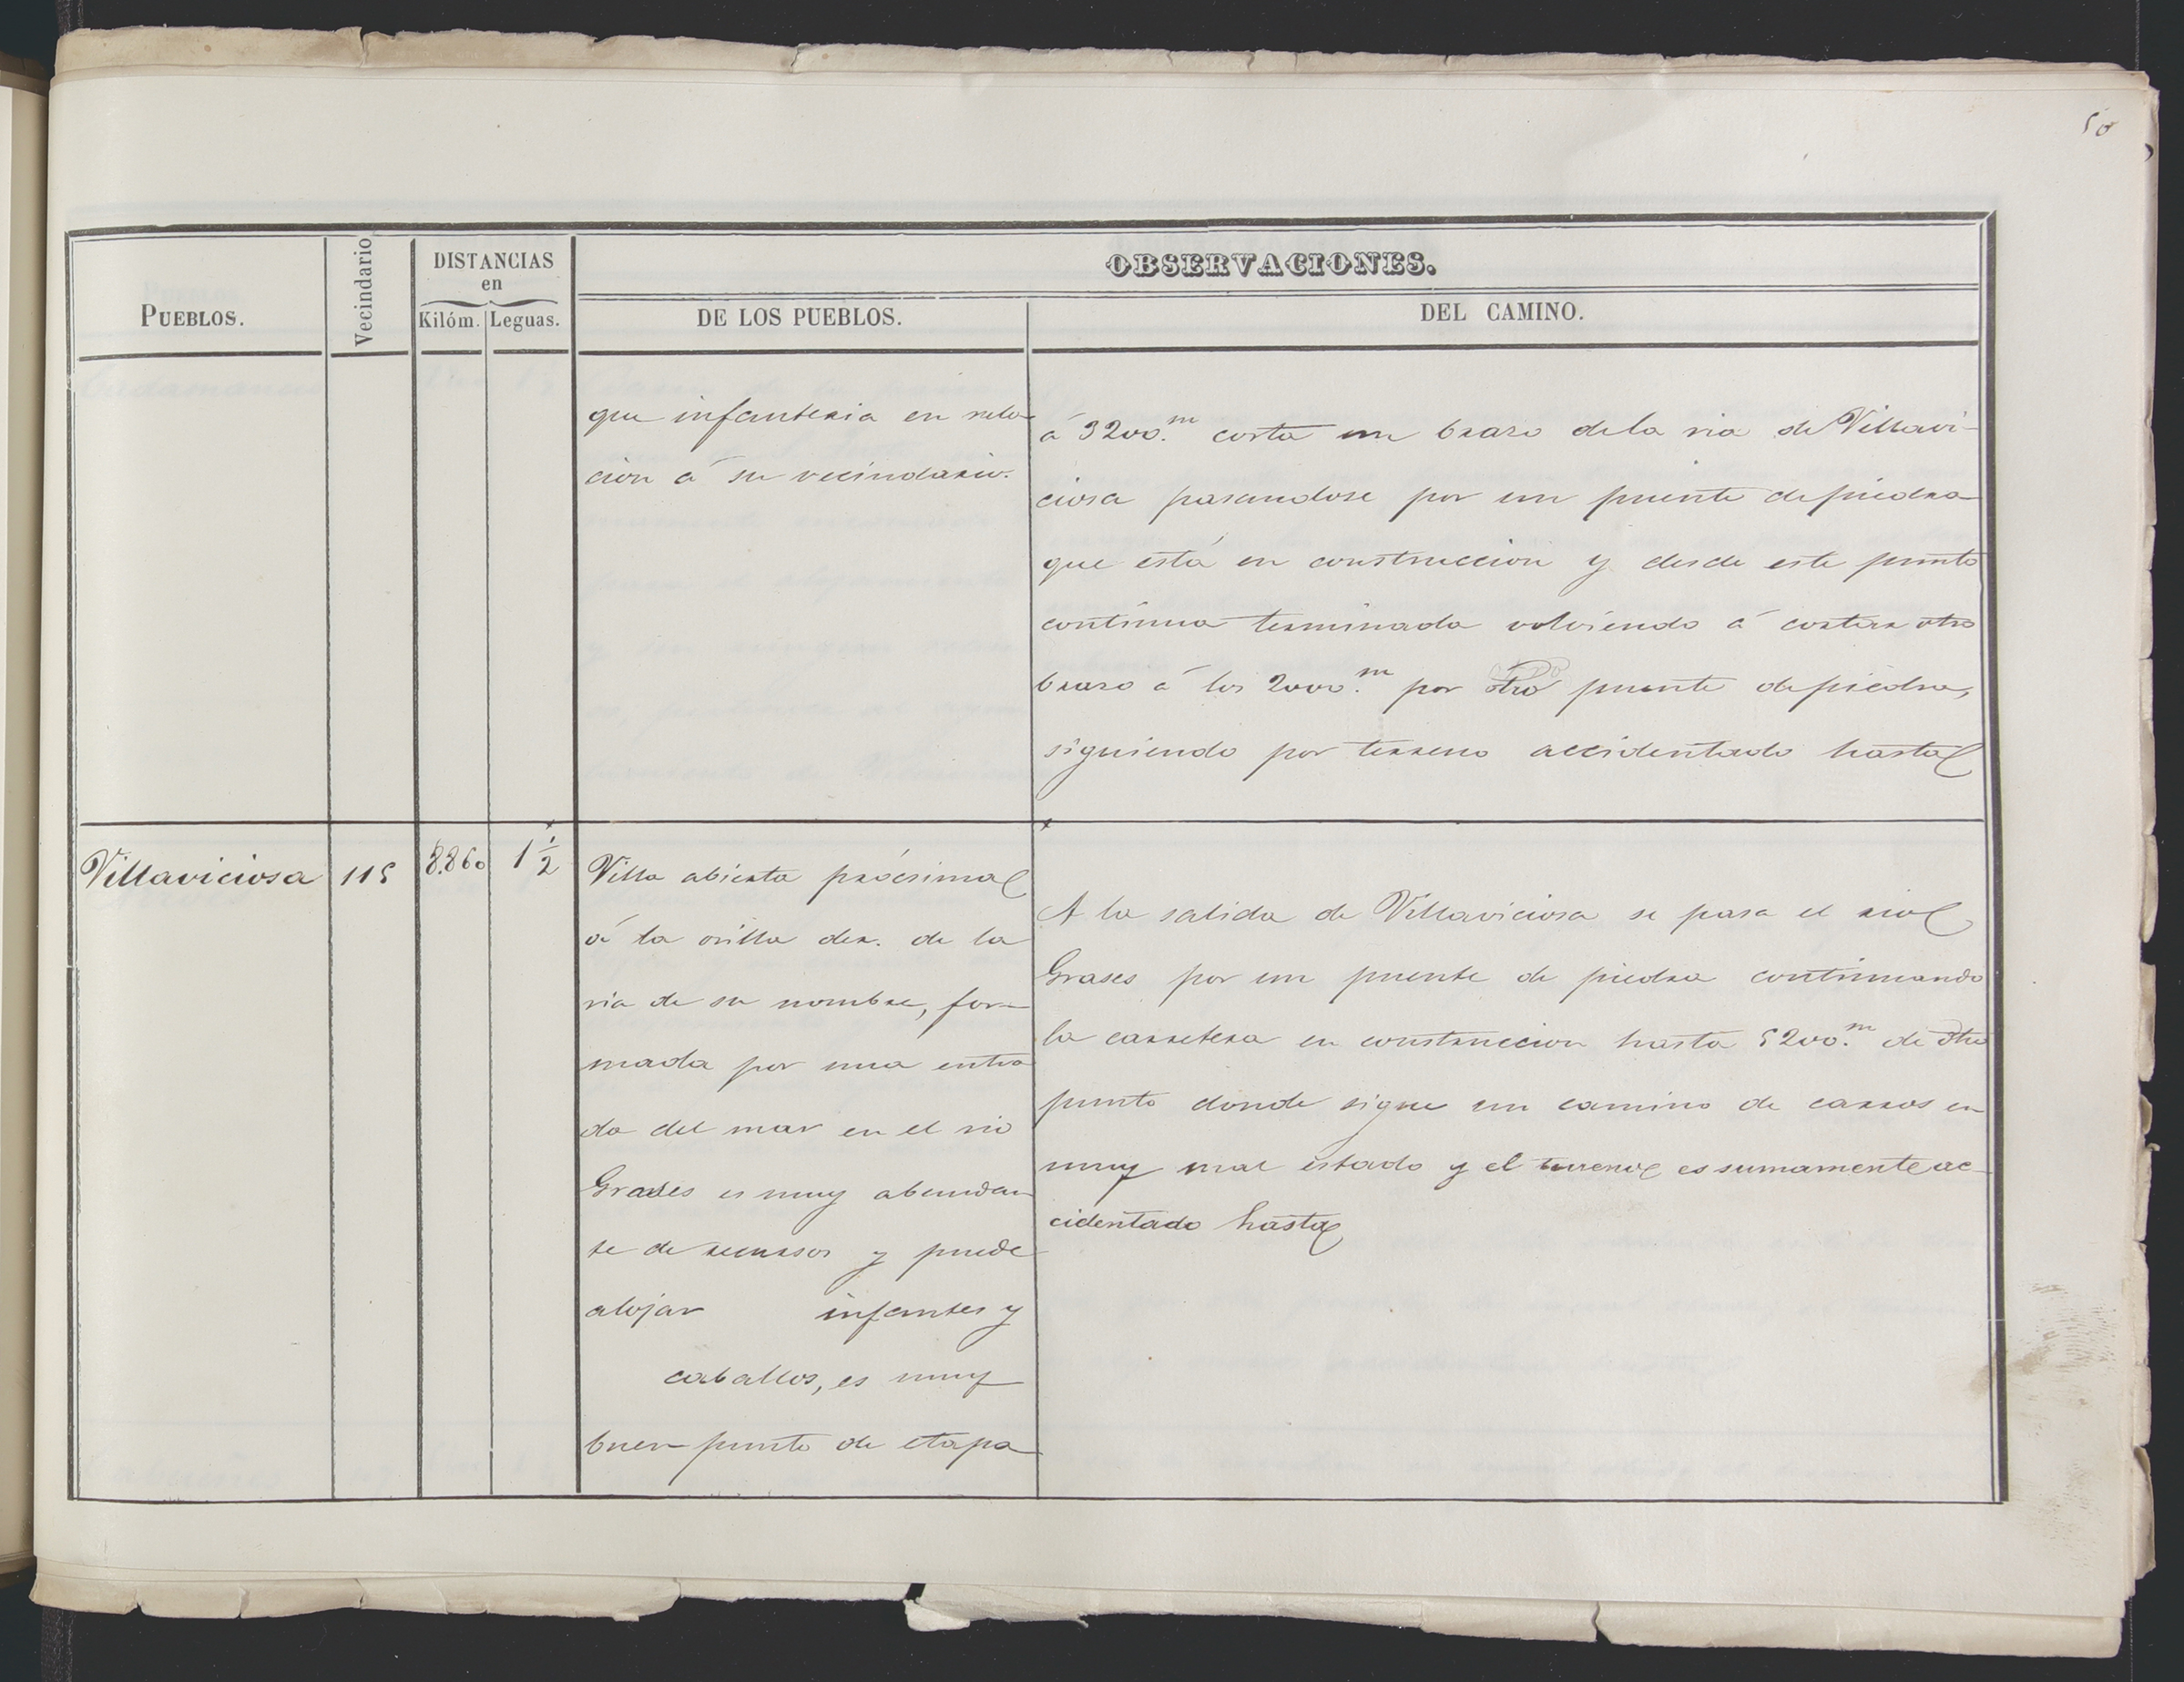 50
OBSERVACIONES.
PUEBLOS.
Vecindario
DISTANCIAS
en
Kilóm. Leguas.
DE LOS PUEBLOS.
DEL CAMINO.
que infanteria en rela
cion á su vecindario.
á 3200.m corta un brazo de la ria de Villavi-
ciosa pasandose por un puente de piedra
que está en construccion y desde este punto
continua terminada volviendo á cortar otro
brazo á los 2000.m por otro puente de piedra,
siguiendo por terreno accidentado hasta
Villaviciosa 115 8.860 1 1/2
Villa abierta procsima
á la orilla der. de la
ria de su nombre, for-
mada por una entra
da del mar en el rio
Grases es muy abundan
te de recursos y puede
alojar infantes y
caballos, es muy
buen punto de etapa
A la salida de Villaviciosa se pasa el rio
Grases por un puente de piedra continuando
la carretera en construccion hasta 5200.m de dho
punto donde sigue un camino de carros en
muy mal estado y el terreno es sumamente ac-
cidentado hasta